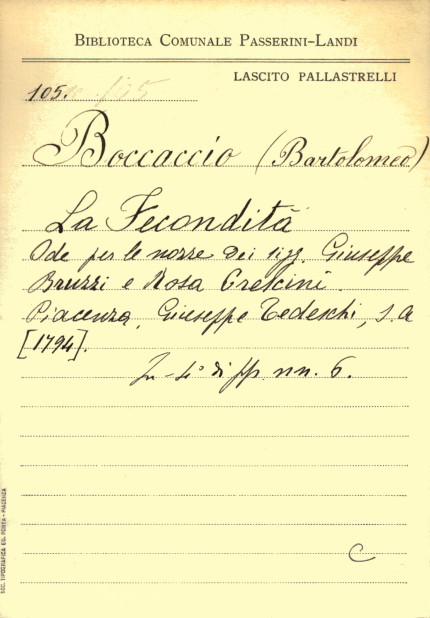 BIBLIOTECA COMUNALE PASSERINI-LANDI
LASCITO PALLASTRELLI
105.
Boccaccio (Bartolomeo)
La Fecondità
Ode per le nozze dei sigg. Giuseppe
Bruzzi e Rosa Crescini.
Piacenza, Giuseppe Tedeschi, s. a
[1794].
In-4° di pp. nn. 6.
C
SOC. TIPOGRAFICA ED. PORTA - PIACENZA